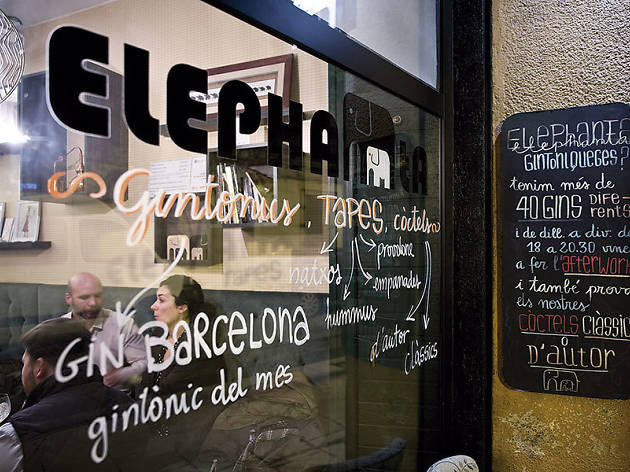 ELEPHANTA
Gintònics, TAPES, còctels
natxos
provolone
empanades
hummus
d'autor
clàssics
GIN BARCELONA
gintònic del mes
ELEPHANTA
elephanta
GINTONIQUEGES?
tenim més de
40 GINS DIFE-
RENTS
i de dill. a div. de
18 a 20.30 vine
a fer l'AFTERWORK
i també prova
els nostres
CÒCTELS CLÀSSICS
O
D'AUTOR